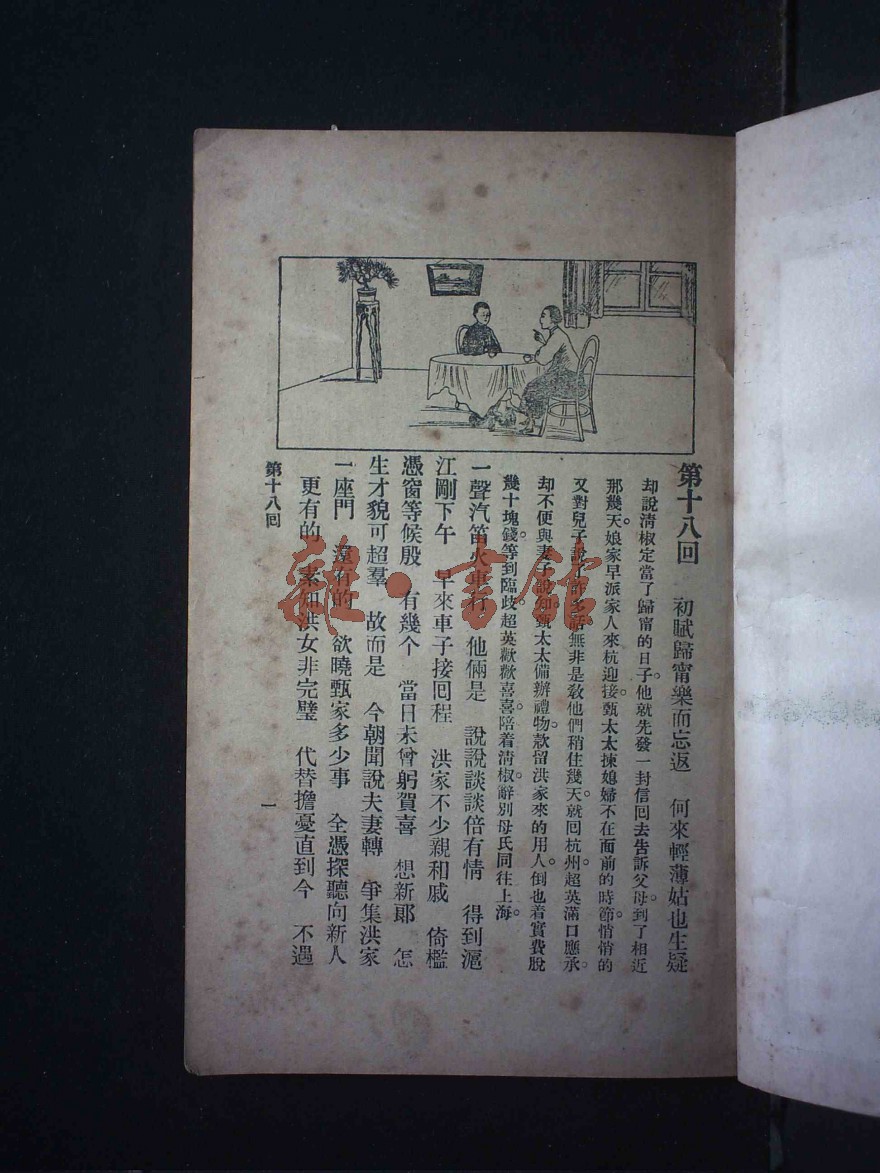 第十八回 初賦歸甯樂而忘返 何來輕薄姑也生疑
却說淸椒定當了歸甯的日子。他就先發一封信回去告訴父母。到了相近
那幾天。娘家早派家人來杭迎接。甄太太揀媳婦不在面前的時節。悄悄的
又對兒子說了許多話。無非是敎他們稍住幾天。就回杭州。超英滿口應承。
却不便與妻子說知。甄太太備辦禮物。款留洪家來的用人。倒也着實費脫
幾十塊錢。等到臨歧。超英歡歡喜喜。陪着淸椒。辭別母氏。同往上海。
一聲汽笛火車行 他倆是 說說談談倍有情 得到滬
江剛下午 早來車子接回程 洪家不少親和戚 倚檻
憑窗等候殷 有幾个 當日未曾躬賀喜 想新郞 怎
生才貌可超羣 故而是 今朝聞說夫妻轉 爭集洪家
一座門 還有的 欲曉甄家多少事 全憑探聽向新人
更有的 素知洪女非完璧 代替擔憂直到今 不過
第十八回
一
雜·書館